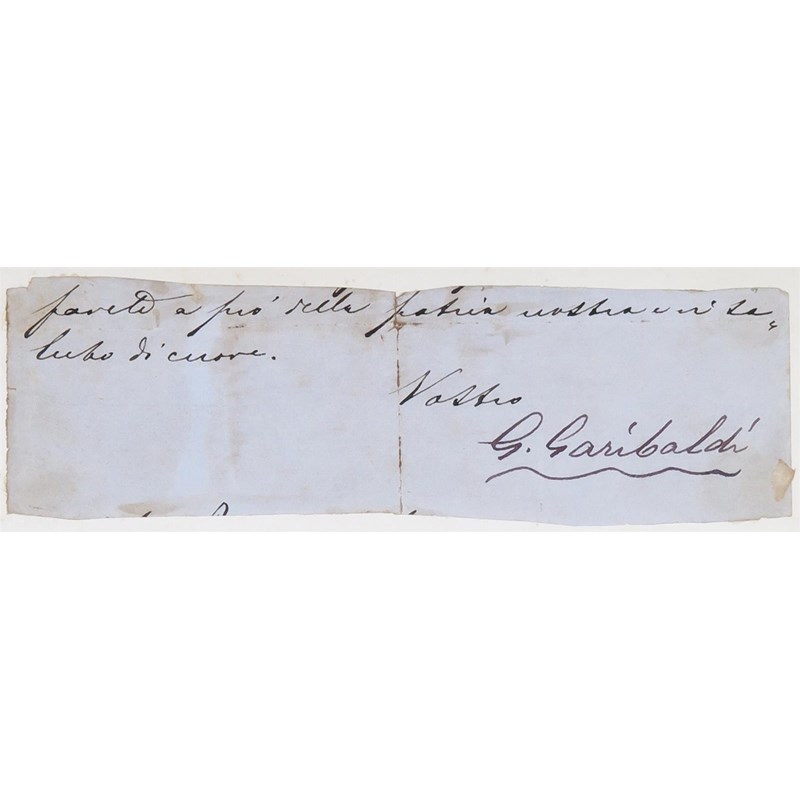 farete a pró della patria nostra e vi sa=
luto di cuore.
Vostro
G. Garibaldi